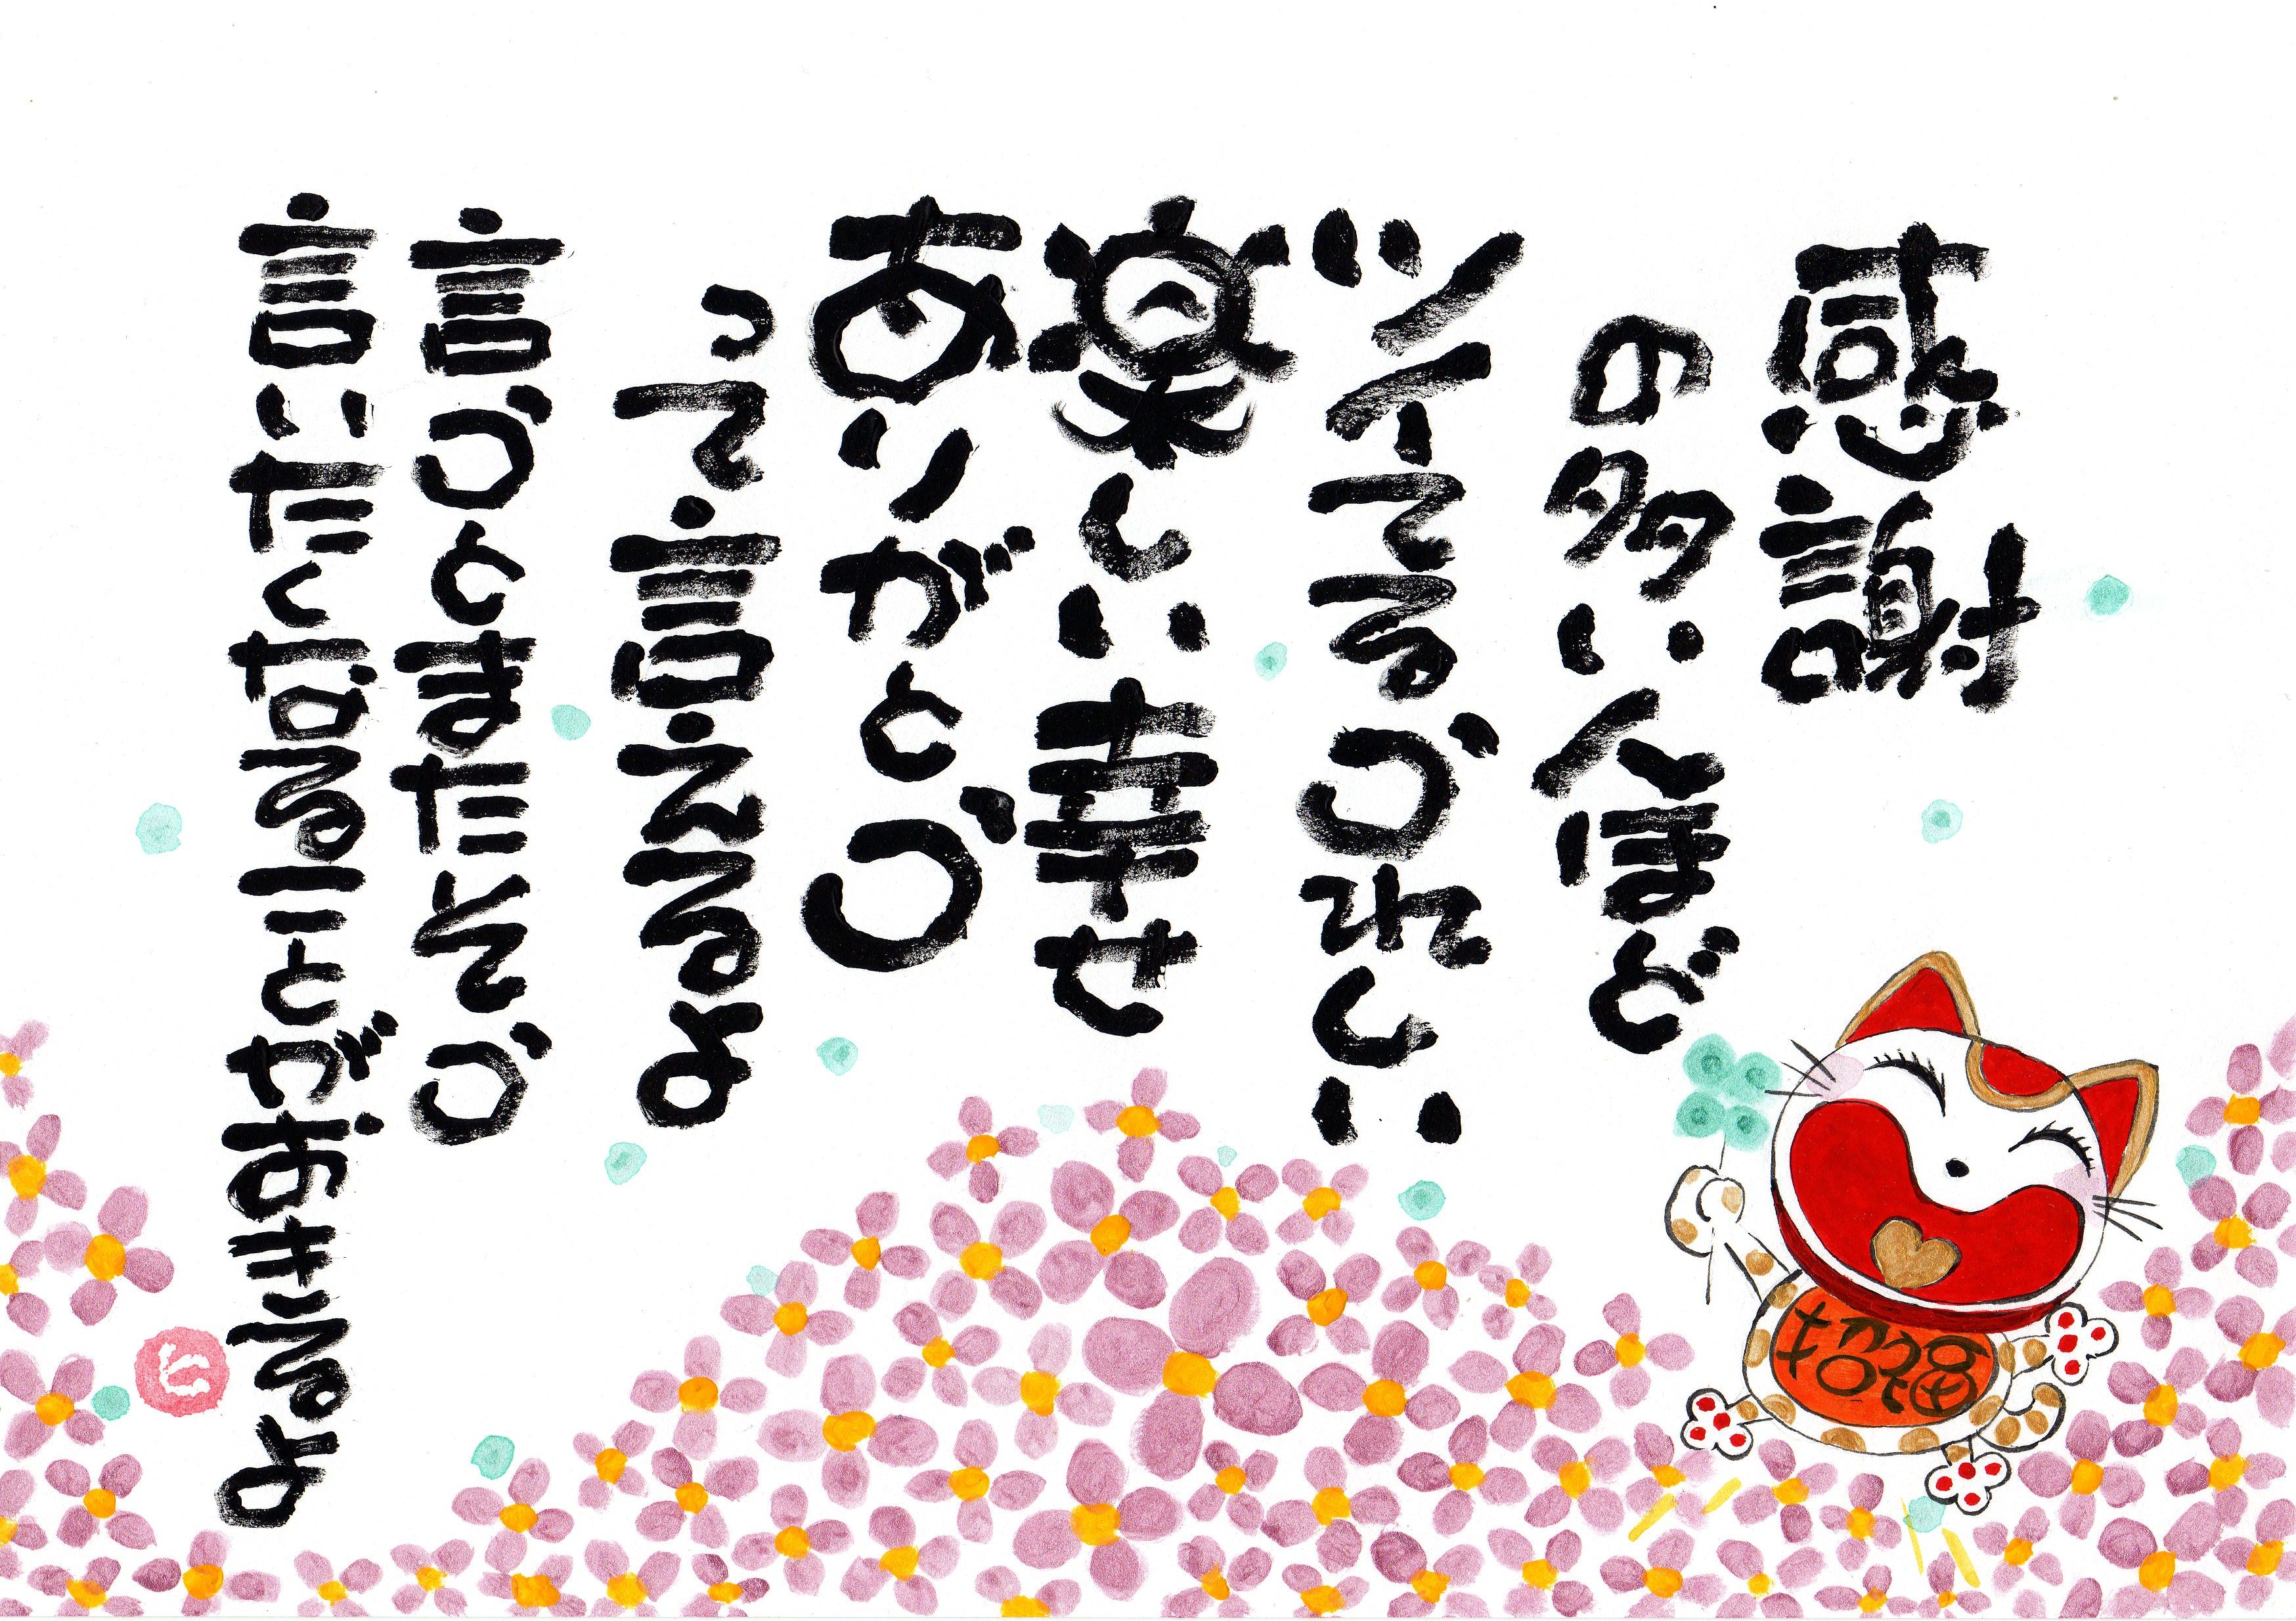 感謝
の多い人ほど
ツイてるうれしい
楽しい幸せ
ありがとう
って言えるよ
言うとまたそう
言いたくなることがおきるよ
招福
ヒ